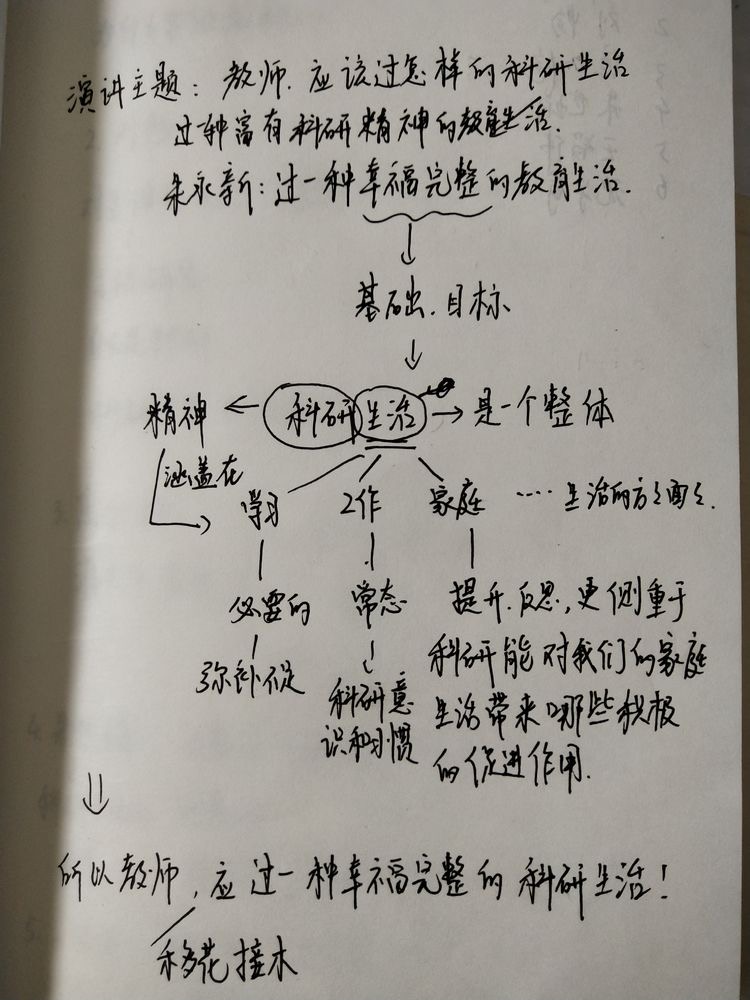 演讲主题：教师.应该过怎样的科研生活
过一种富有科研精神的教育生活.
朱永新：过一种幸福完整的教育生活.
基础.目标
精神 科研 生活 是一个整体
涵盖在
学习 工作 家庭 ···· 生活的方方面面.
必要的 常态 提升.反思,更侧重于
弥补不足 科研能对我们的家庭
科研意 生活带来哪些积极
识和习惯 的促进作用.
所以教师,应过一种幸福完整的科研生活!
移花接木